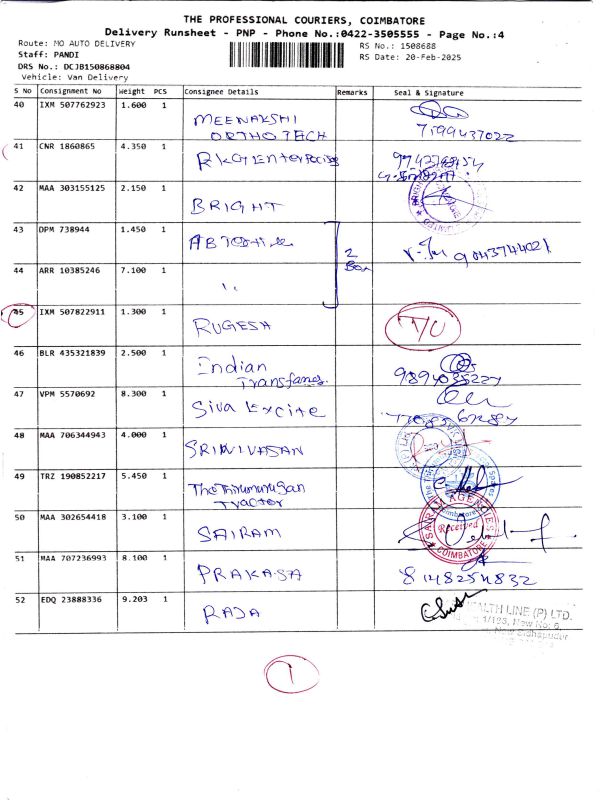 THE PROFESSIONAL COURIERS, COIMBATORE
Delivery Runsheet - PNP - Phone No.:0422-3505555 - Page No.:4
Route: MO AUTO DELIVERY
Staff: PANDI
DRS No.: DCJB150868804
Vehicle: Van Delivery
RS No.: 1508688
RS Date: 20-Feb-2025
S No Consignment No Weight PCS Consignee Details Remarks Seal & Signature
40 IXM 507762923 1.600 1 MEENAKSHI
ORTHO TECH 7199437022
41 CNR 1860865 4.350 1 RKG Enterprises
42 MAA 303155125 2.150 1 BRIGHT
43 DPM 738944 1.450 1 AB Textile 2 Box 9043744021
44 ARR 10385246 7.100 1 "
45 IXM 507822911 1.300 1 RUGESA T/O
46 BLR 435321839 2.500 1 Indian 9894035227
47 VPM 5570692 8.300 1 Siva Excite
48 MAA 706344943 4.000 1 SRINIVASAN
49 TRZ 190852217 5.450 1 The Thirumurugan
Tractor
50 MAA 302654418 3.100 1 SAIRAM
SAIRAM AGENCIES
Received
COIMBATORE
51 MAA 707236993 8.100 1 PRAKASA 8148254832
52 EDQ 23888336 9.203 1 RAJA
HEALTH LINE (P) LTD.
1